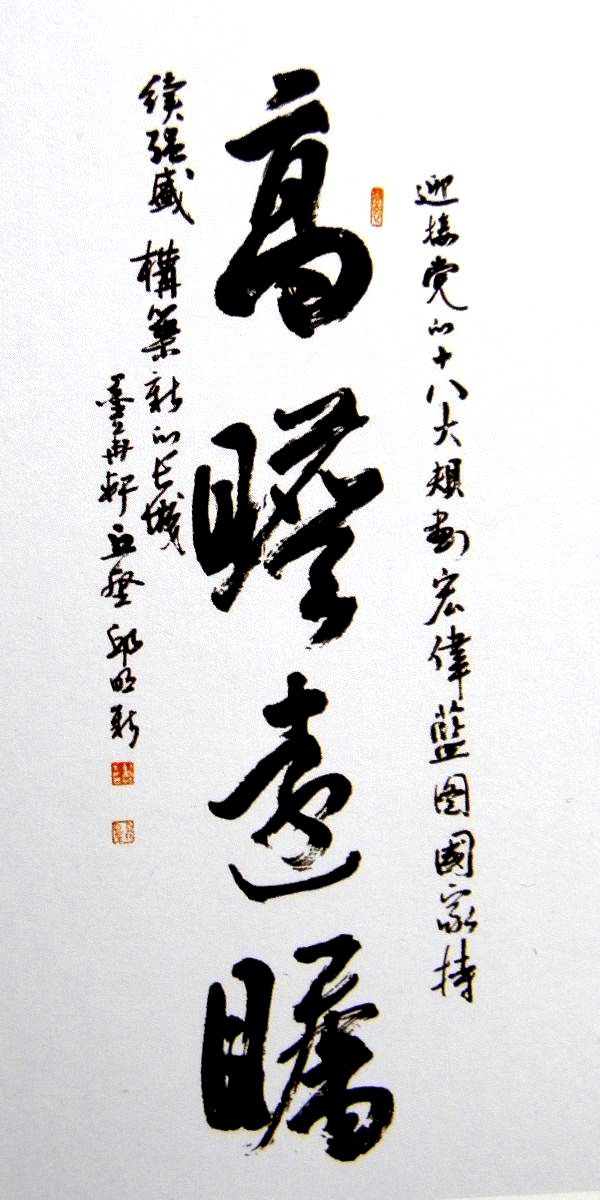 迎接党的十八大規劃宏偉藍图國家持
高瞻遠矚
續强盛 構築新的长城
墨冉軒 邱明新